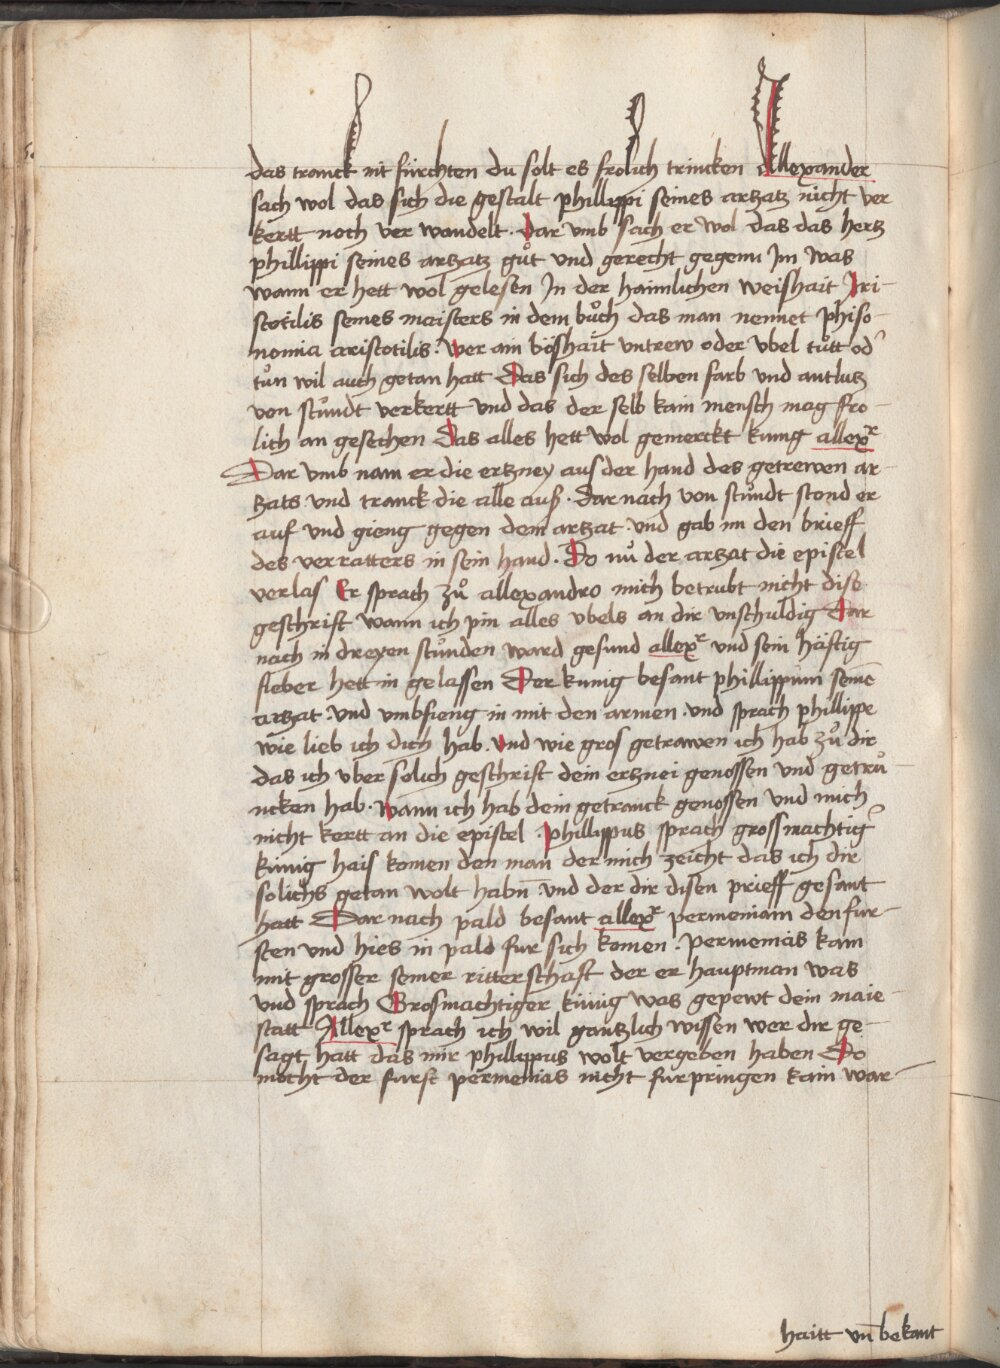 das tranck nit fürchten du solt es frolich trincken Allexander
sach wol das sich die gestalt phillippi seines artzatz nicht ver
kertt noch ver wandelt · Dar vmb sach er wol das das hertz
phillippi seines artzatz gůt vnd gerecht gegem im was
wann er hett wol gelesen In der haimlichen weishait Ari-
stotilis seines maisters in dem bůch das man nennet phiso-
nomia aristotilis · Wer ain böshait vntrew oder vbel tůtt od'
tůn wil auch getan hatt Das sich des selben farb vnd antlutz
von stůndt verkertt vnd das der selb kain mensch mag fro-
lich an gesechen Das alles hett wol gemerckt kunig allexr
Dar vmb nam er die ertzney aus der hand des getrewen ar-
tzats vnd tranck die alle auß · Dar nach von stůndt stond er
auf vnd gieng gegen dem artzat · vnd gab im den brieff
des verratters in sein hand · Do nů der artzat die epistel
verlas Er sprach zů allexandro mich betrubt nicht dise
geschrift wann ich pin alles vbels an dir vnschuldig Dar
nach in dreyen stůnden ward gesund allexr vnd sein häftig
fieber hett in gelassen Der kunig besant phillippum seinē
artzat · vnd vmbfieng in mit den armen · vnd sprach phillippe
wie lieb ich dich hab · Vnd wie gros getrawen ich hab zů dir
das ich vber solich geschrift dein ertznei genossen vnd getrů-
ncken hab · Wann ich hab dein getranck genossen vnd mich
nicht kertt an die epistel · Phillippus sprach grossmachtig'
künig hais komen den man der mich zeicht das ich dir
solichs getan wolt habn̄ · vnd der dir disen prieff gesant
hatt Dar nach pald besant allexr permeniam den fur-
sten vnd hies in pald fur sich komen · permenias kam
mit grosser seiner ritterschaft der er hauptman was
vnd sprach Grosmachtiger künig was gepewt dein maie-
statt Allexr sprach ich wil gantzlich wissen wer dir ge-
sagt hatt das mir phillippus wolt vergeben haben Do
mocht der furst permenias nicht furpringen kain war-
haitt vn̄ bekant